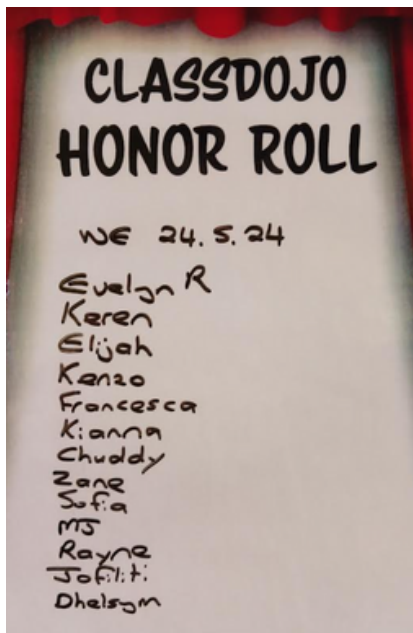 CLASSDOJO
HONOR ROLL
WE 24.5.24
Evelyn R
Keren
Elijah
Kenzo
Francesca
Kianna
Chuddy
Zane
Sofia
MJ
Rayne
Jofiliti
Dhelsym